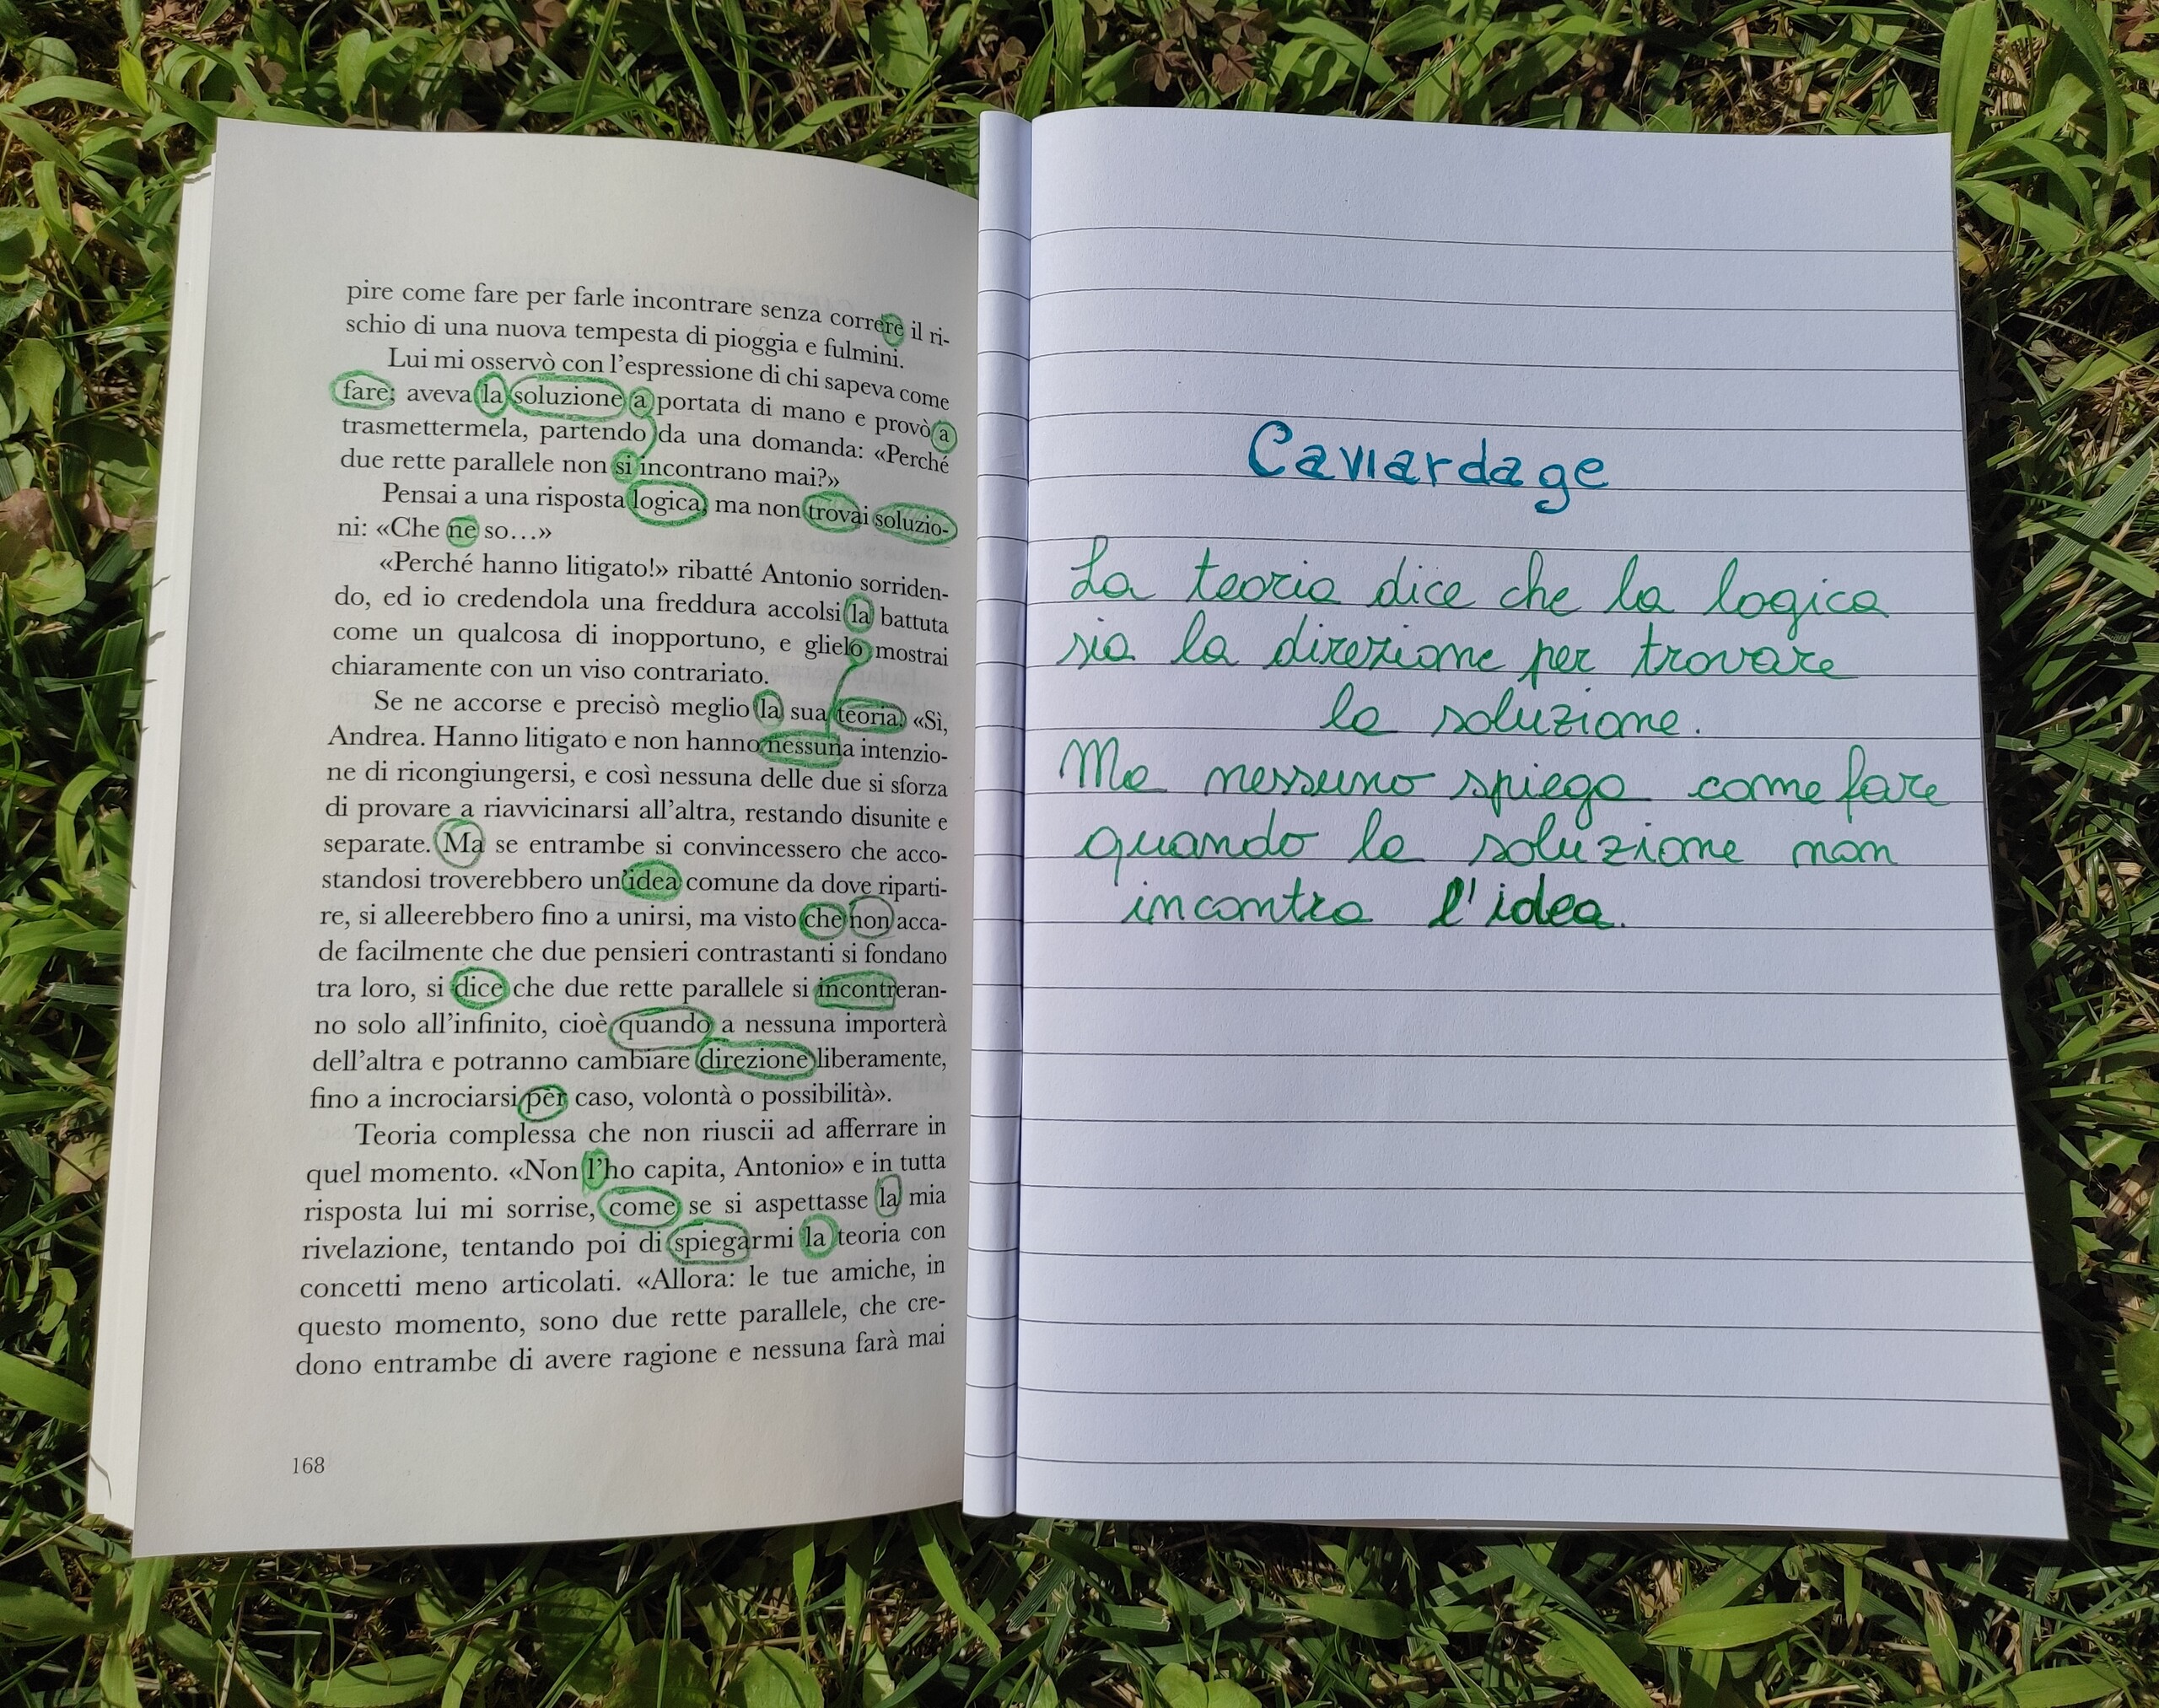 pire come fare per farle incontrare senza correre il ri-
schio di una nuova tempesta di pioggia e fulmini.
Lui mi osservò con l'espressione di chi sapeva come
fare; aveva la soluzione a portata di mano e provò a
trasmettermela, partendo da una domanda: «Perché
due rette parallele non si incontrano mai?»
Pensai a una risposta logica, ma non trovai soluzio-
ni: «Che ne so…»
«Perché hanno litigato!» ribatté Antonio sorriden-
do, ed io credendola una freddura accolsi la battuta
come un qualcosa di inopportuno, e glielo mostrai
chiaramente con un viso contrariato.
Se ne accorse e precisò meglio la sua teoria. «Sì,
Andrea. Hanno litigato e non hanno nessuna intenzio-
ne di ricongiungersi, e così nessuna delle due si sforza
di provare a riavvicinarsi all'altra, restando disunite e
separate. Ma se entrambe si convincessero che acco-
standosi troverebbero un'idea comune da dove riparti-
re, si alleerebbero fino a unirsi, ma visto che non acca-
de facilmente che due pensieri contrastanti si fondano
tra loro, si dice che due rette parallele si incontreran-
no solo all'infinito, cioè quando a nessuna importerà
dell'altra e potranno cambiare direzione liberamente,
fino a incrociarsi per caso, volontà o possibilità».
Teoria complessa che non riuscii ad afferrare in
quel momento. «Non l'ho capita, Antonio» e in tutta
risposta lui mi sorrise, come se si aspettasse la mia
rivelazione, tentando poi di spiegarmi la teoria con
concetti meno articolati. «Allora: le tue amiche, in
questo momento, sono due rette parallele, che cre-
dono entrambe di avere ragione e nessuna farà mai
168
Caviardage
La teoria dice che la logica
sia la direzione per trovare
la soluzione.
Ma nessuno spiega come fare
quando la soluzione non
incontra l'idea.